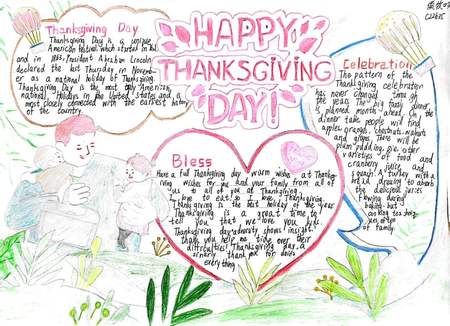 HAPPY
THANKSGIVING
DAY!
Thanksgiving Day
Thanksgiving Day is a unique
American festival, which started in
and in President Abraham Lincoln
declared the last Thursday in Novem-
er as a national holiday of Thanksgiving.
Thanksgiving Day is the most truly American
national holidays in the United States and is
most closely connected with the earliest history
of the country.
Celebration
The pattern of the
Thanksgiving celebration
has never changed through
the years. The big family dinner
is planned months ahead. On the
dinner table, people will find
apples, oranges, chestnuts, walnuts
and grapes. There will be
plum pudding, pie, other
varieties of food and
cranberry juice and
squash. A turkey with a
the delicious juices
flowing during
baking
cooking
often
of family
Bless
Have a full Thanksgiving day warm wishes at Thanksg-
iving wishes for and your family from all of
us to all of you at Thanksgiving. I
love to eat, so I love Thanksgiving.
Thanksgiving is the best holiday of the year.
Thanksgiving is a great time to
tell you that we love you kids.
Thanksgiving day
thank you help me tide over
difficulties! Thanksgiving day, a
thank me for
everything